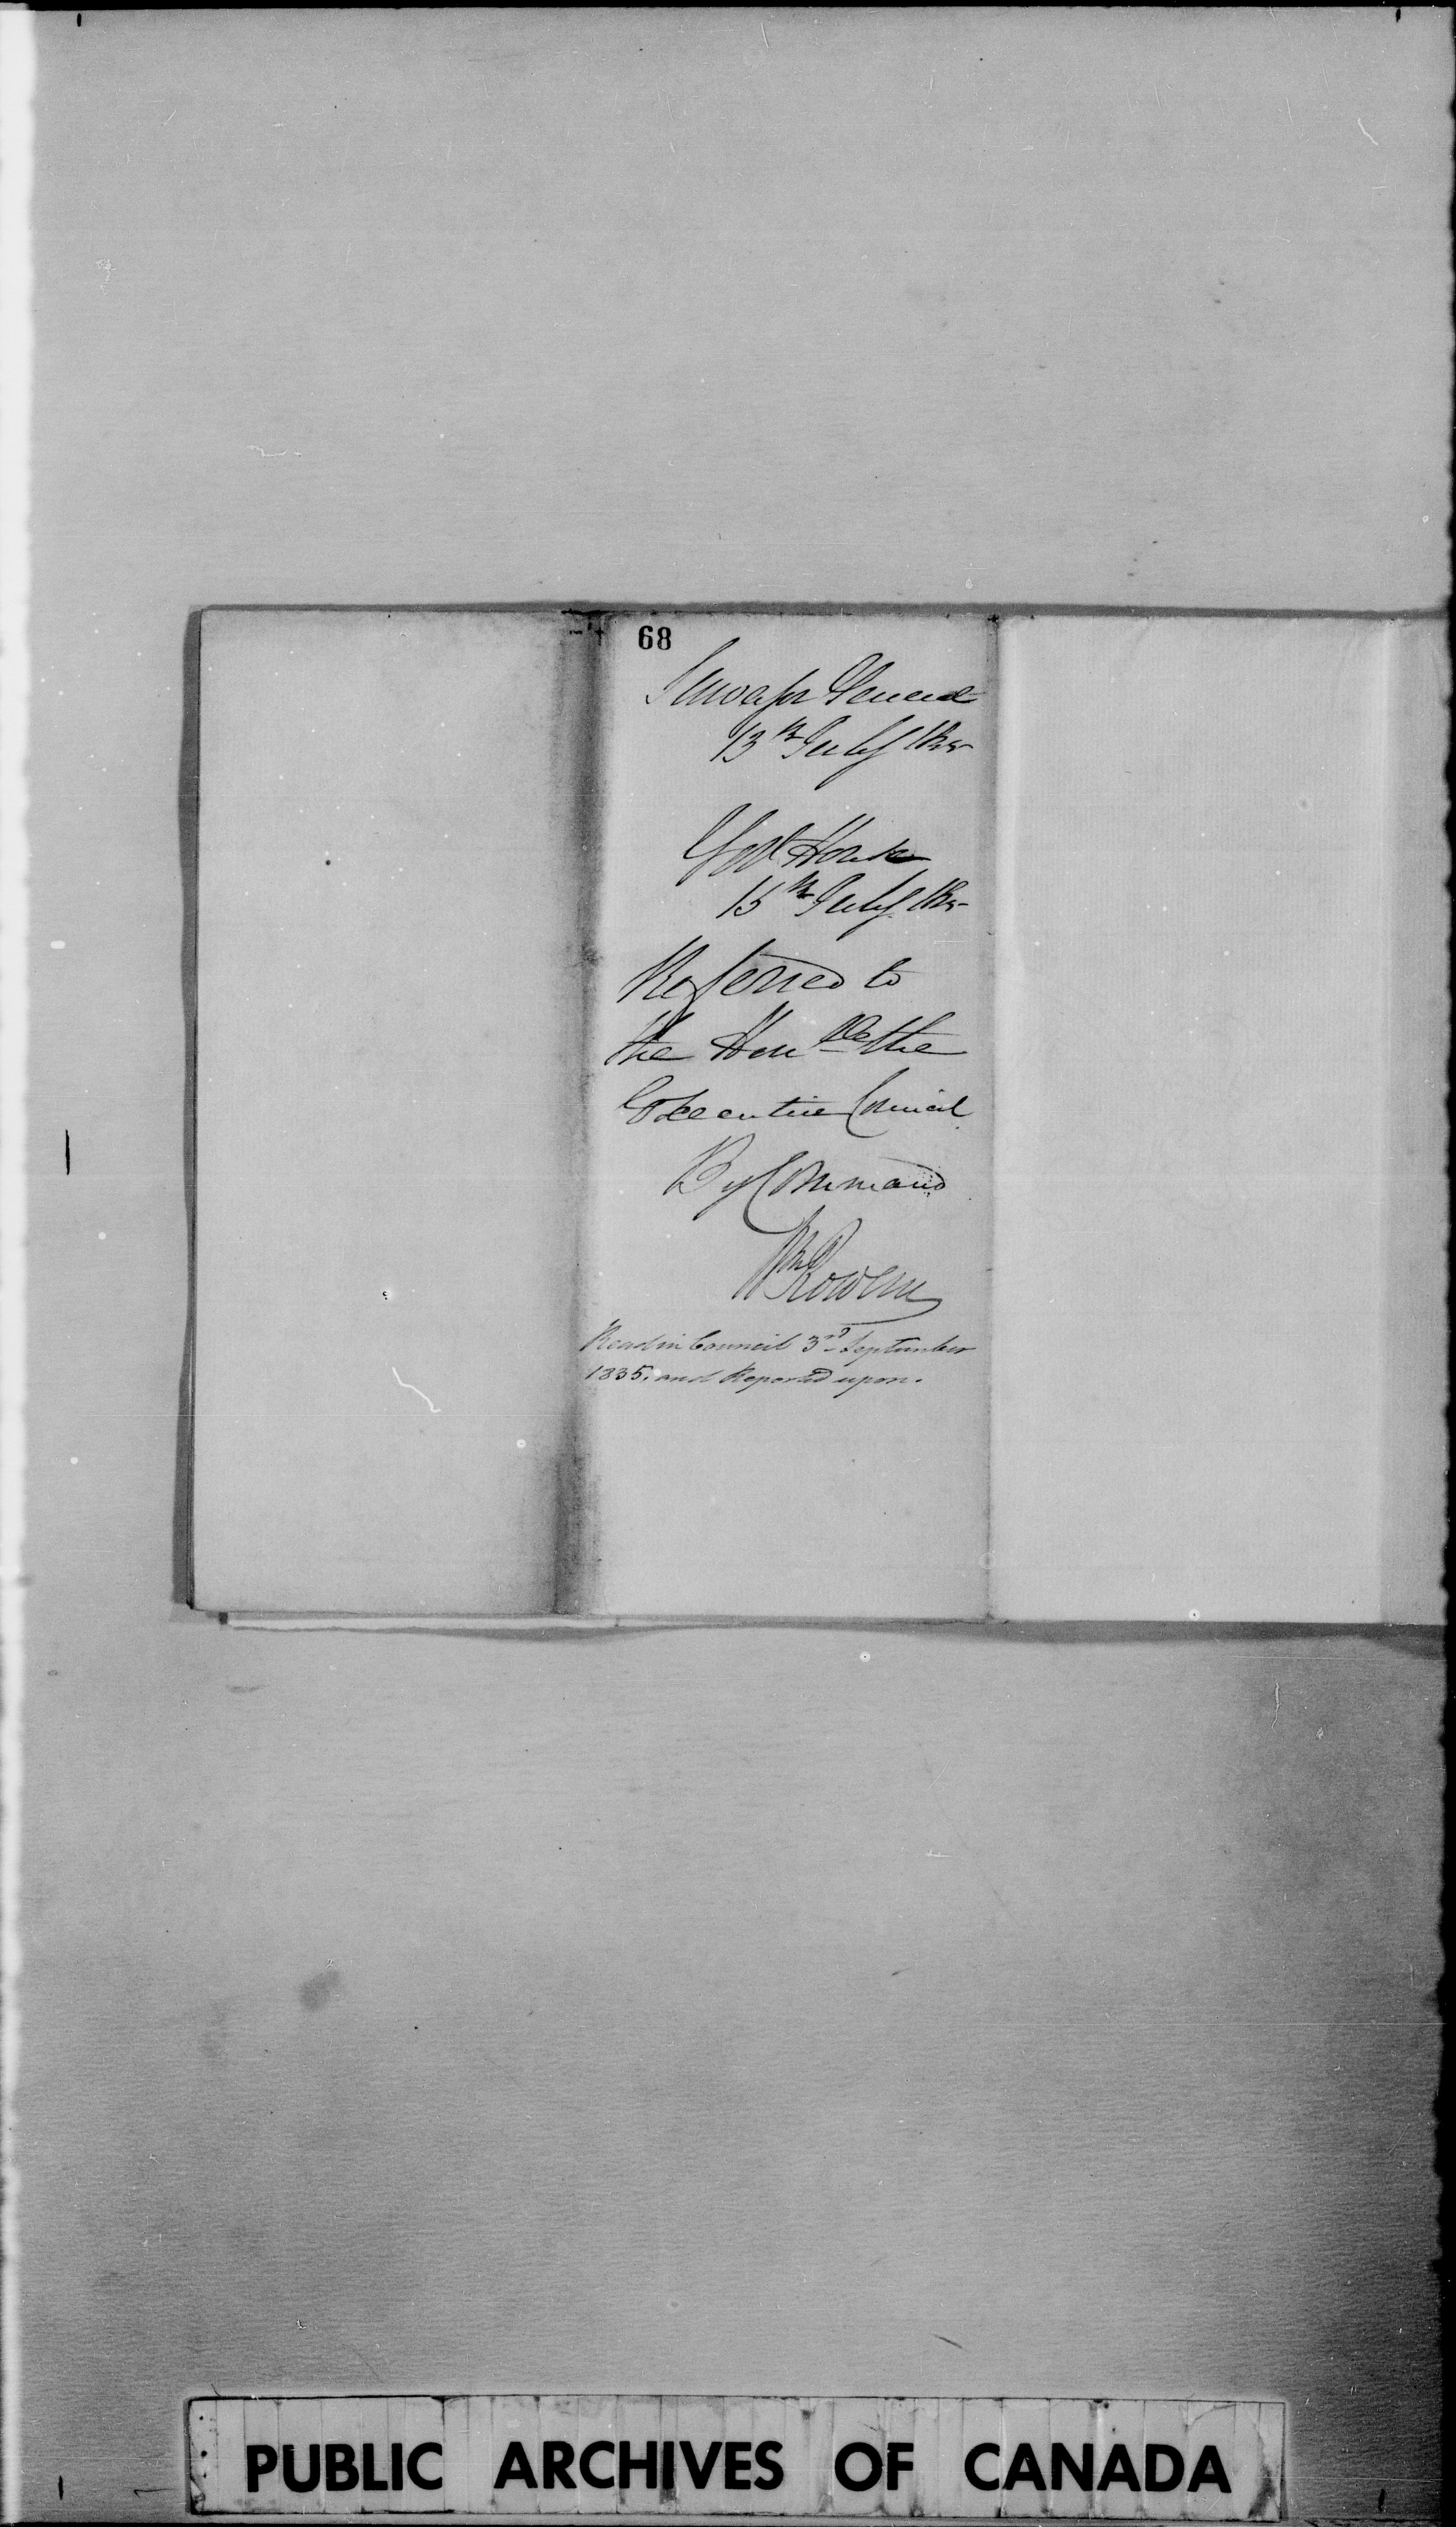 68
Surveyor General
13th July 1835
Govt House
15th July 1835
Referred to
the Honble the
Executive Council
By Command
Wm Rowan
Read in Council 3rd September
1835. and Reported upon.
PUBLIC ARCHIVES OF CANADA